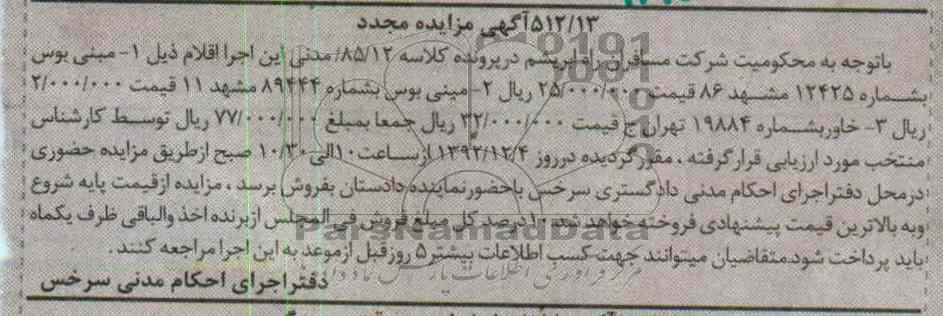 ۵۱۲/۱۳آگهی مزایده مجدد
باتوجه به محکومیت شرکت مسافران راه ابریشم درپرونده کلاسه ۸۵/۱۲/مدنی این اجرا اقلام ذیل ۱- مینی بوس
بشماره ۱۲۴۲۵ مشهد ۸۶ قیمت ۲۵/۰۰۰/۰۰۰ ریال ۲- مینی بوس بشماره ۸۹۴۴۴ مشهد ۱۱ قیمت ۲/۰۰۰/۰۰۰
ریال ۳- خاوربشماره ۱۹۸۸۴ تهران ج قیمت ۳۲/۰۰۰/۰۰۰ ریال جمعا بمبلغ ۷۷/۰۰۰/۰۰۰ ریال توسط کارشناس
منتخب مورد ارزیابی قرارگرفته ، مقررگردیده درروز ۱۳۹۲/۱۲/۴ ازساعت۱۰الی ۱۰/۳۰ صبح ازطریق مزایده حضوری
درمحل دفتراجرای احکام مدنی دادگستری سرخس باحضورنماینده دادستان بفروش برسد ، مزایده ازقیمت پایه شروع
وبه بالاترین قیمت پیشنهادی فروخته خواهد شد. ۱۰درصد کل مبلغ فروش فی المجلس ازبرنده اخذ والباقی ظرف یکماه
باید پرداخت شود.متقاضیان میتوانند جهت کسب اطلاعات بیشتر ۵ روزقبل ازموعد به این اجرا مراجعه کنند .
دفتراجرای احکام مدنی سرخس
ParsNamadData